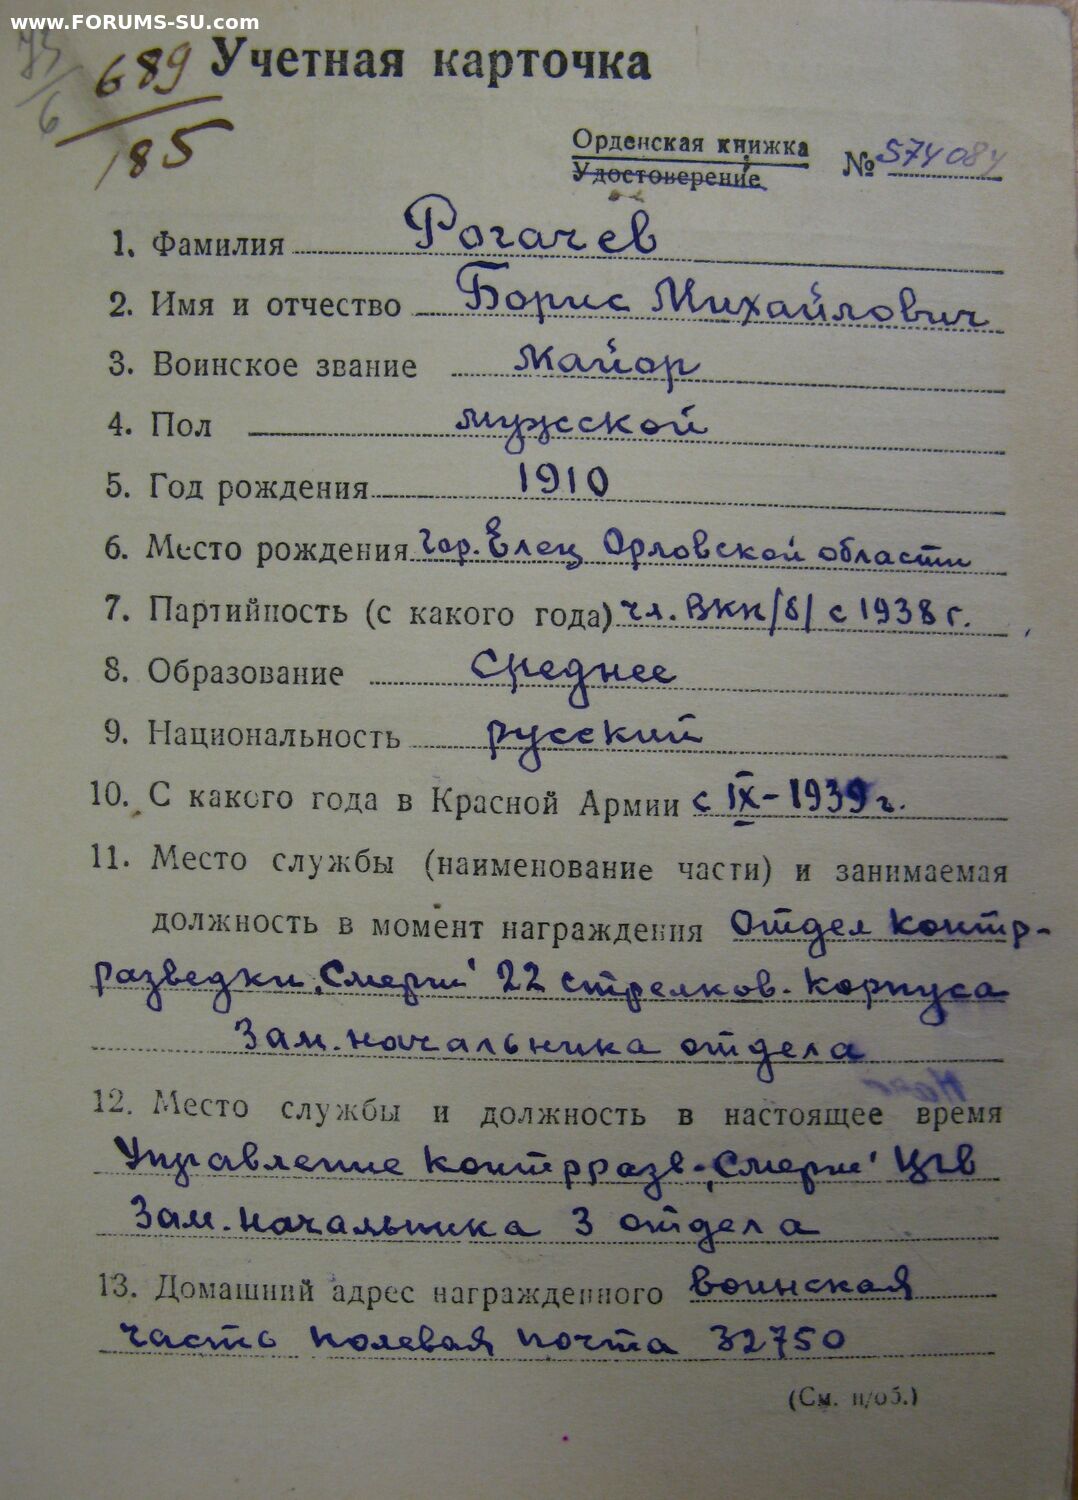 www.FORUMS-SU.com
689
185
Учетная карточка
Орденская книжка
Удостоверение
№ 574084
1. Фамилия Рогачев
2. Имя и отчество Борис Михайлович
3. Воинское звание майор
4. Пол мужской
5. Год рождения 1910
6. Место рождения гор. Елец Орловской области
7. Партийность (с какого года) чл. ВКП/б/ с 1938 г.
8. Образование среднее
9. Национальность русский
10. С какого года в Красной Армии с IX-1939 г.
11. Место службы (наименование части) и занимаемая
должность в момент награждения Отдел контр-
разведки „Смерш" 22 стрелков. корпуса
Зам. начальника отдела
12. Место службы и должность в настоящее время
Управление контрразв. „Смерш" ЦГВ
Зам. начальника 3 отдела
13. Домашний адрес награжденного воинская
часть полевая почта 32750
(См. н/об.)